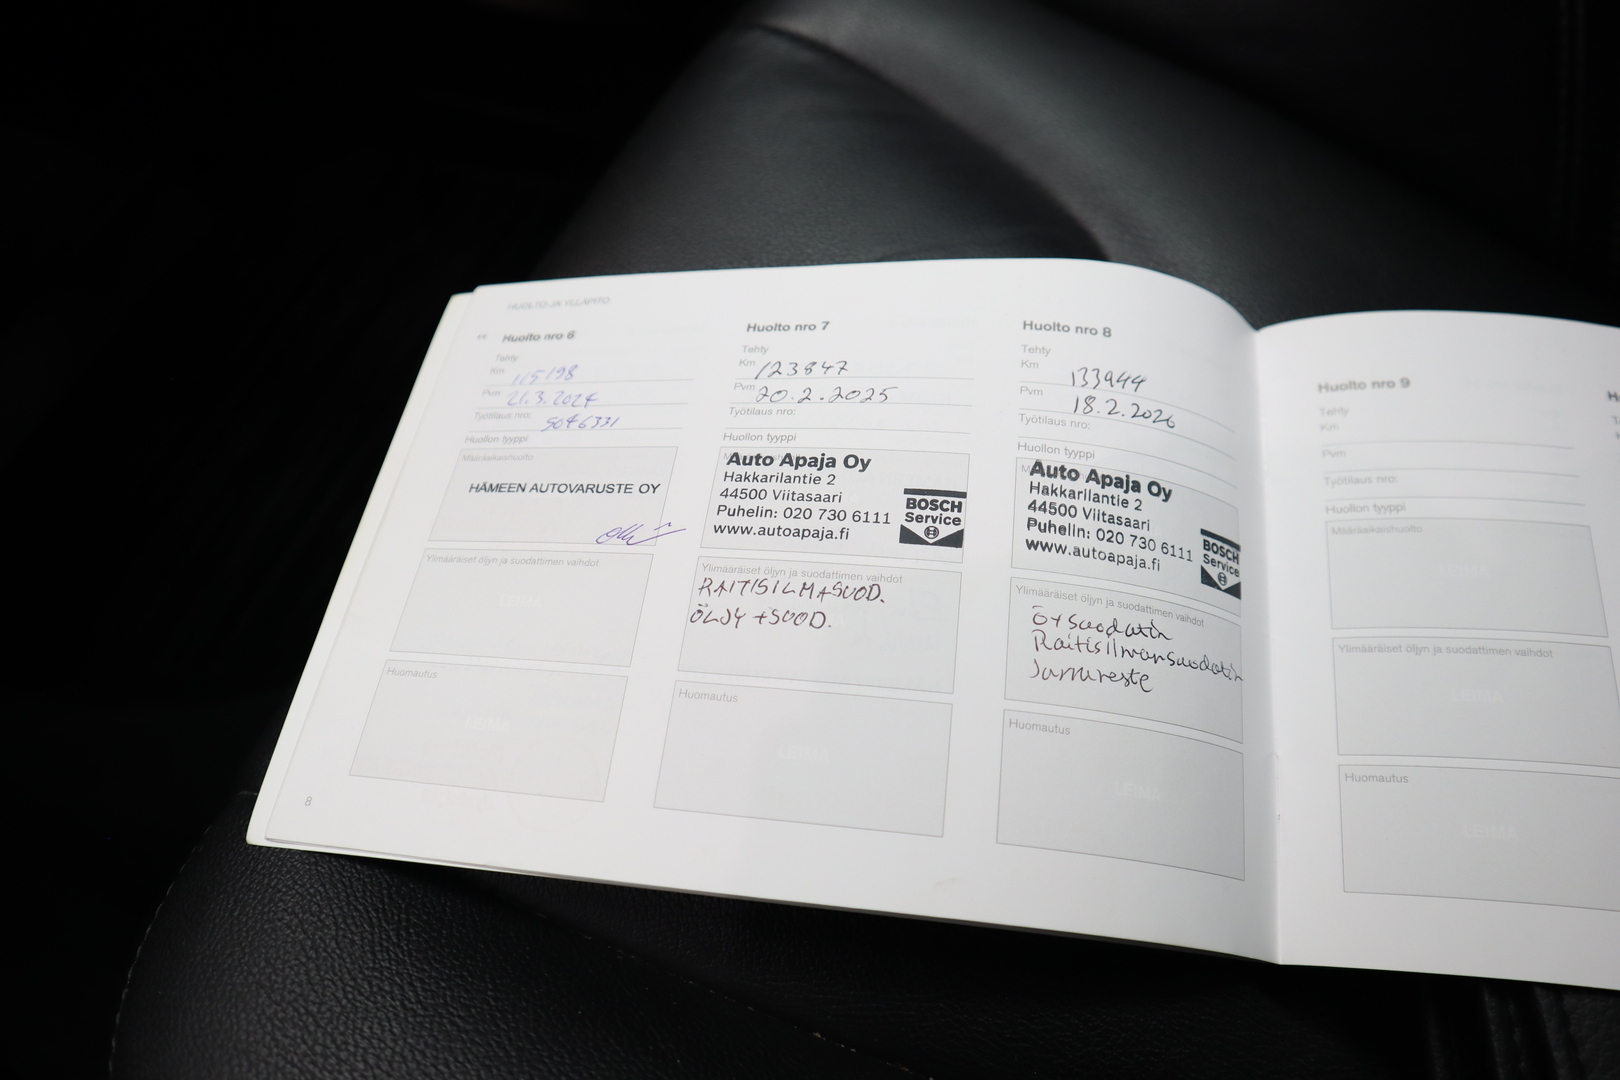 HUOLTO JA YLLÄPITO
Huolto nro 6
Tehty
Km 115198
Pvm 21.3.2024
Työtilaus nro: 5046331
Huollon tyyppi
Määräaikaishuolto
HÄMEEN AUTOVARUSTE OY
Ylimääräiset öljyn ja suodattimen vaihdot
LEIMA
Huomautus
LEIMA
8
Huolto nro 7
Tehty
Km 123847
Pvm 20.2.2025
Työtilaus nro:
Huollon tyyppi
Auto Apaja Oy
Hakkarilantie 2
44500 Viitasaari
Puhelin: 020 730 6111
www.autoapaja.fi
BOSCH
Service
Ylimääräiset öljyn ja suodattimen vaihdot
RAITISILMASUOD.
ÖLJY +SUOD.
Huomautus
LEIMA
Huolto nro 8
Tehty
Km 133944
Pvm 18.2.2026
Työtilaus nro:
Huollon tyyppi
Auto Apaja Oy
Hakkarilantie 2
44500 Viitasaari
Puhelin: 020 730 6111
www.autoapaja.fi
BOSCH
Service
Ylimääräiset öljyn ja suodattimen vaihdot
Ö+suodatin
Raitisilmansuodatin
Jarrureste
Huomautus
LEIMA
Huolto nro 9
Tehty
Km
Pvm
Työtilaus nro:
Huollon tyyppi
Määräaikaishuolto
LEIMA
Ylimääräiset öljyn ja suodattimen vaihdot
LEIMA
Huomautus
LEIMA